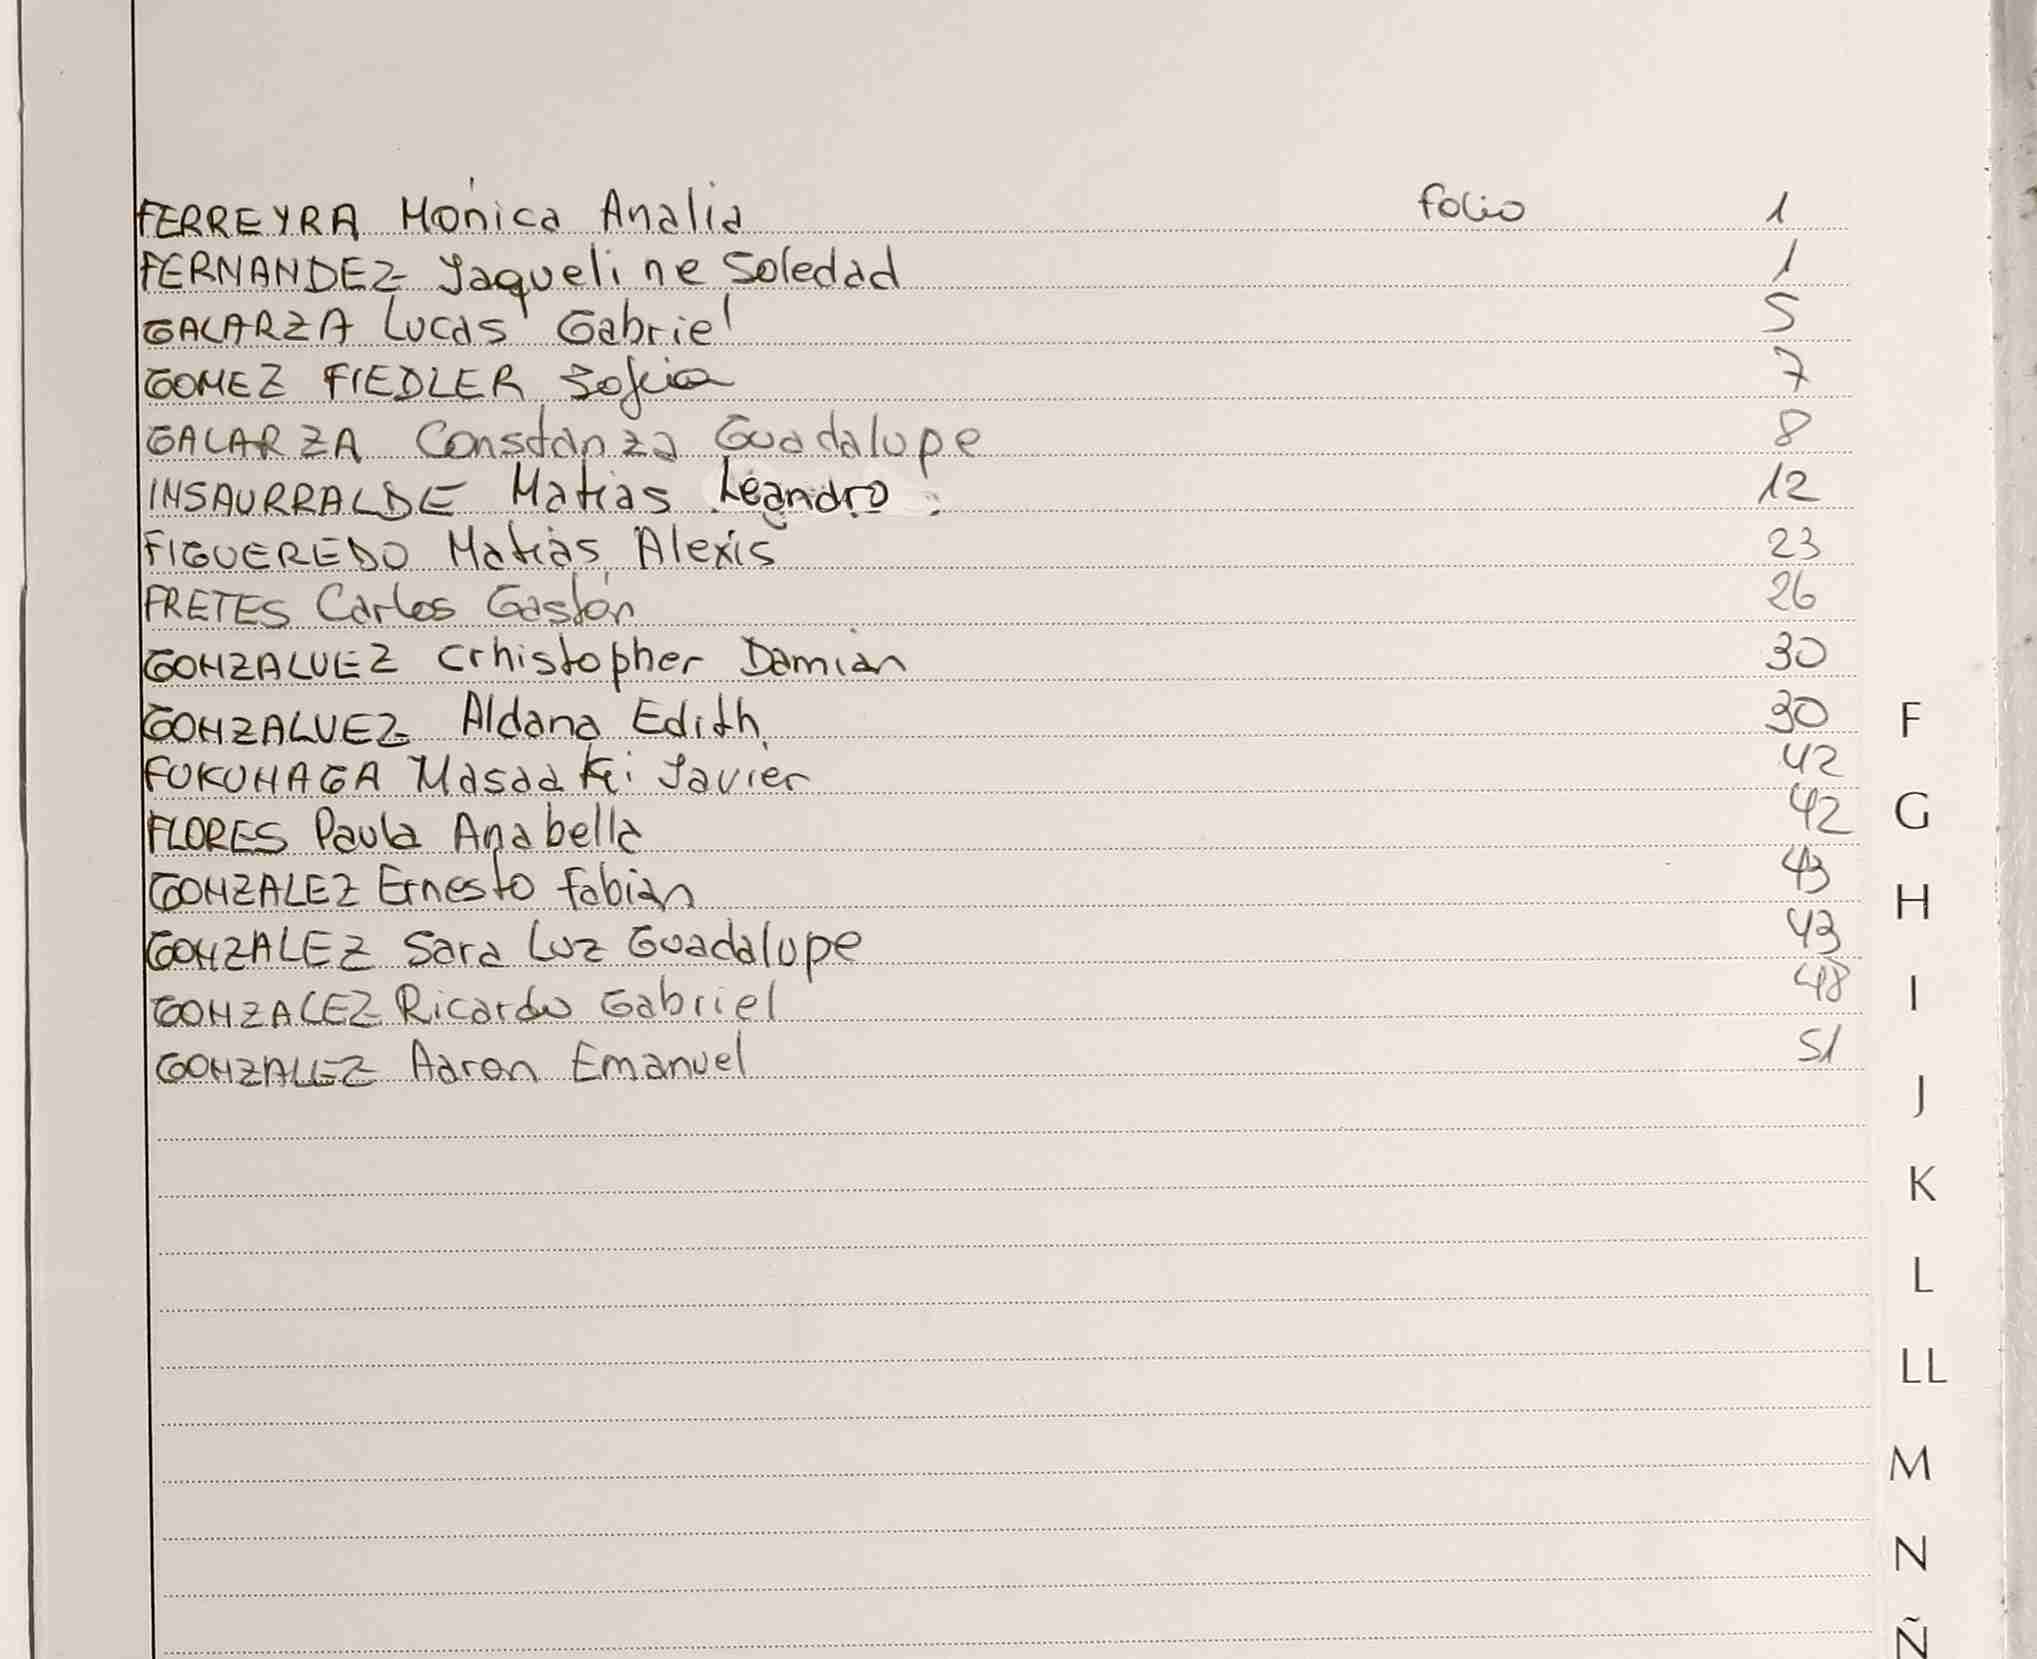 FERREYRA Mónica Analia folio 1
FERNANDEZ Jaqueline Soledad 1
GALARZA Lucas Gabriel 5
GOMEZ FIEDLER Sofia 7
GALARZA Constanza Guadalupe 8
INSAURRALDE Matias Leandro 12
FIGUEREDO Matias Alexis 23
FRETES Carlos Gastón 26
GONZALVEZ Crhistopher Damian 30
GONZALVEZ Aldana Edith 30
F
FUKUHAGA Masaaki Javier 42
FLORES Paula Anabella 42
G
GONZALEZ Ernesto Fabian 43
H
GONZALEZ Sara Luz Guadalupe 43
GONZALEZ Ricardo Gabriel 48
I
GONZALEZ Aaron Emanuel 51
J
K
L
LL
M
N
Ñ